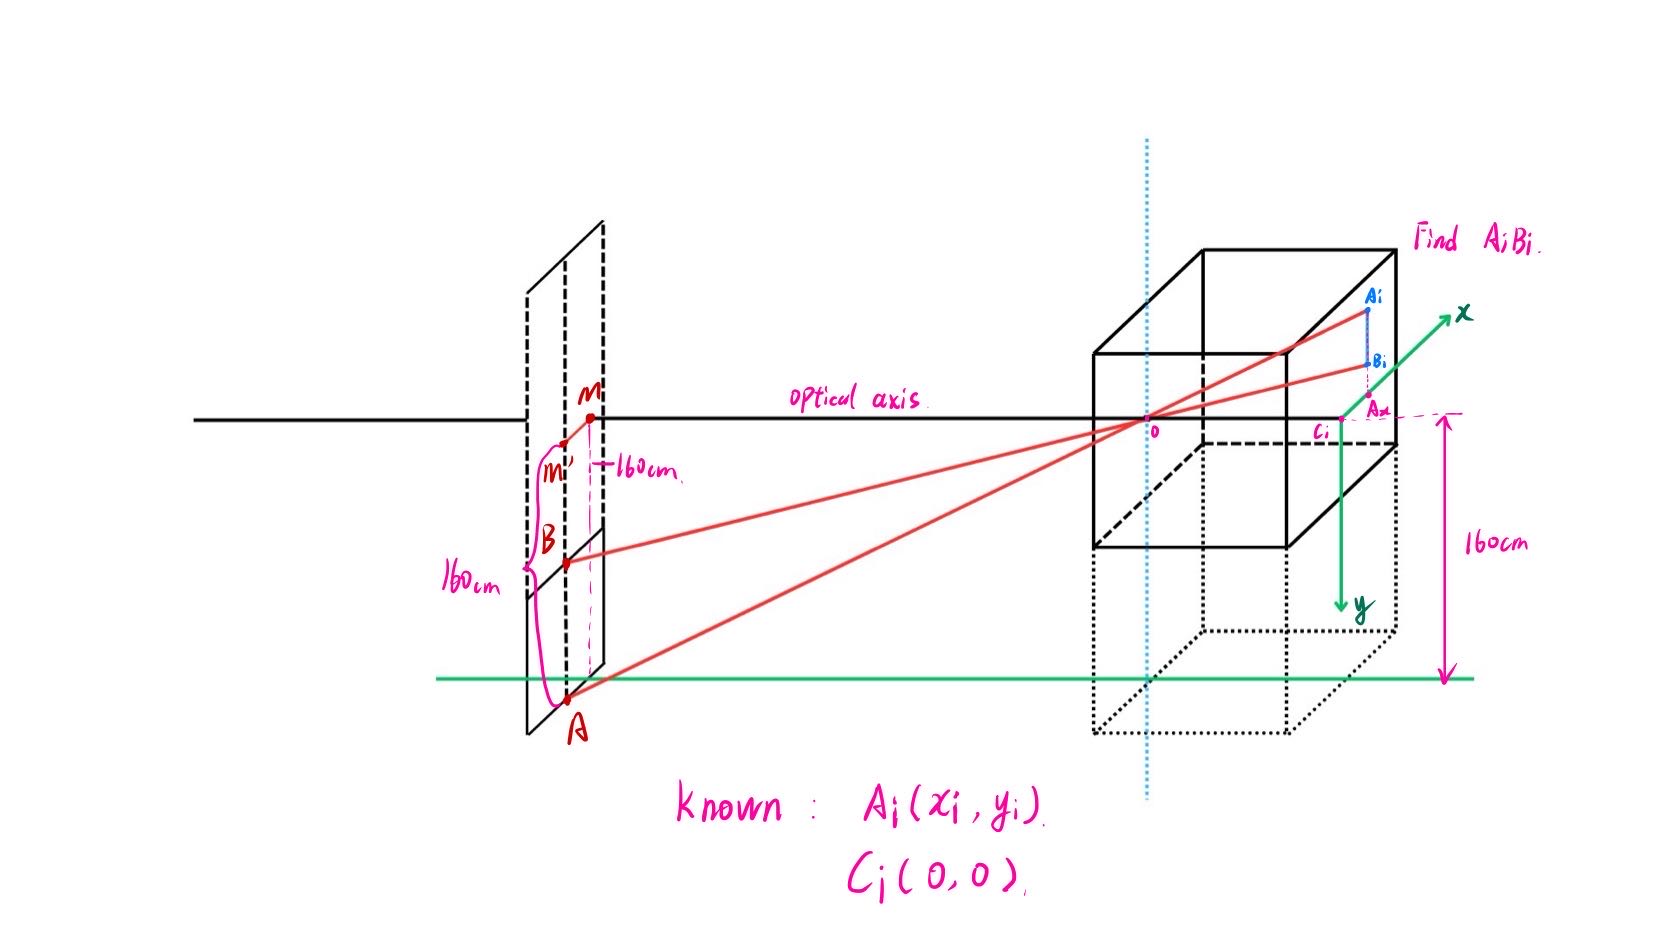 Find AiBi.
Ai
x
M
optical axis.
Bi
Ax
O
Ci
M'
160cm.
B
160cm
160cm
y
A
known : Ai(xi, yi).
Ci(0,0).